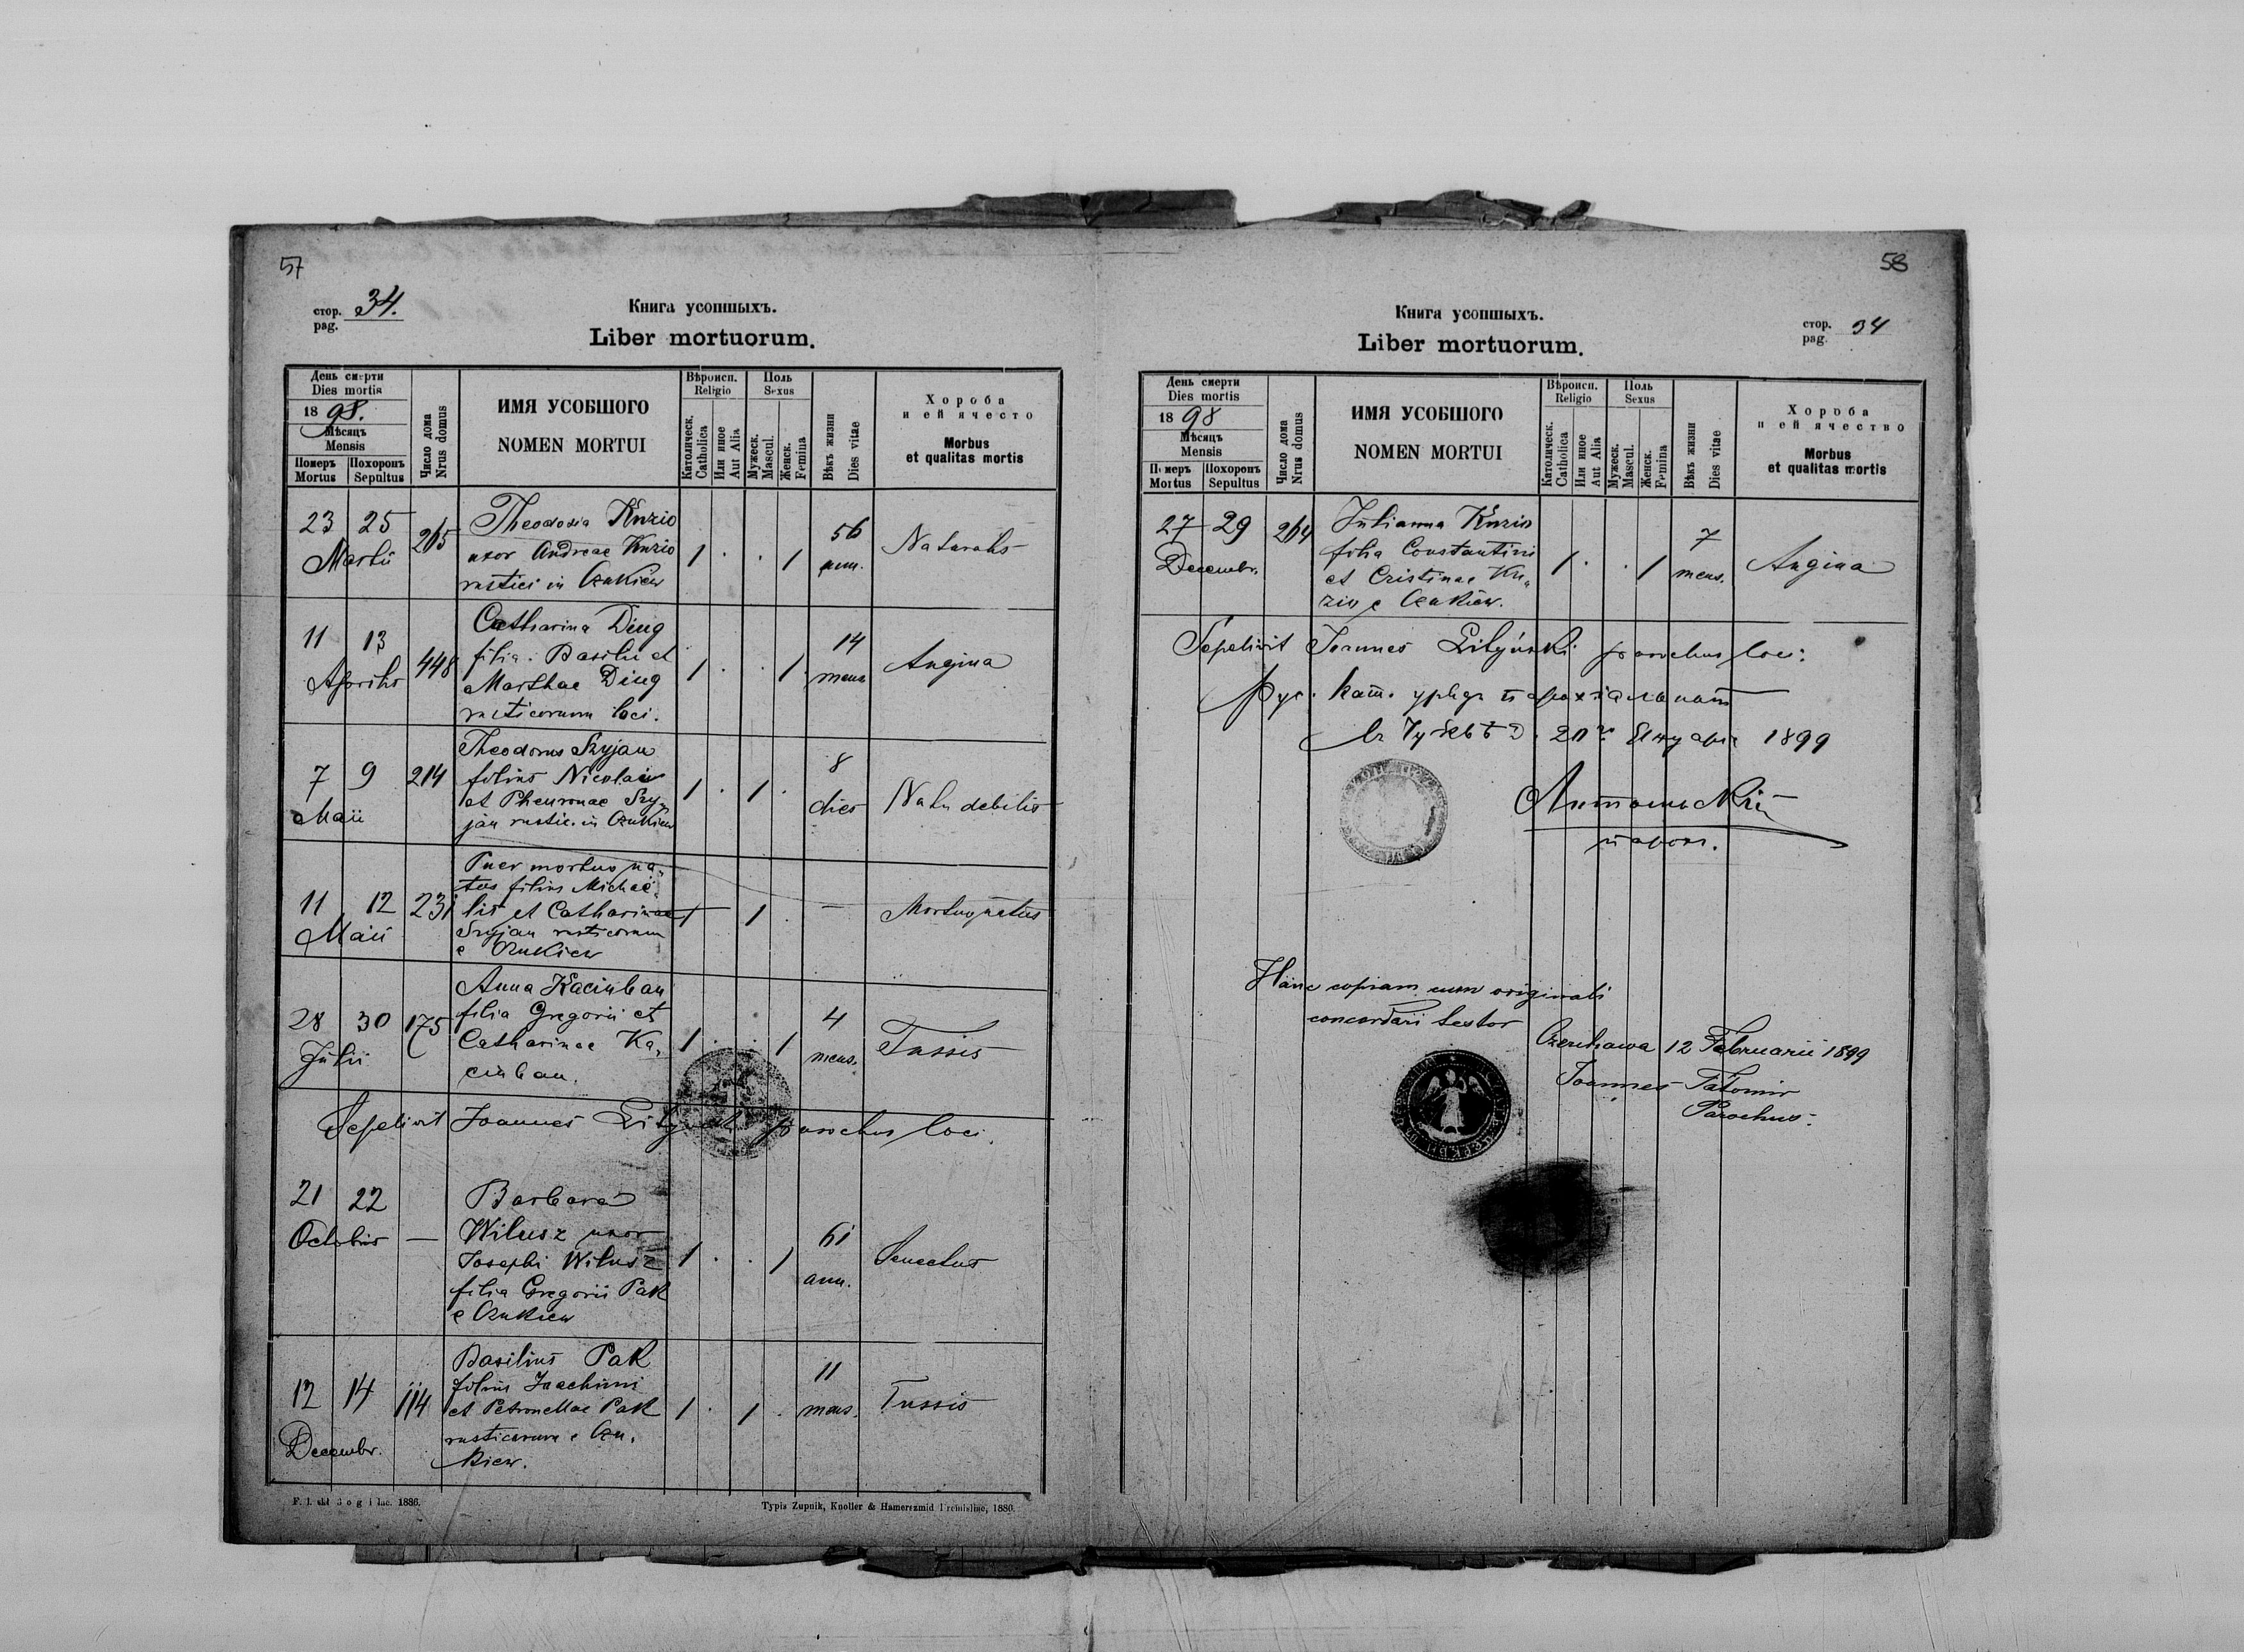 57
стор. 34.
pag.
Книга усопшыхъ.
Liber mortuorum.
День смерти
Dies mortis
1898.
Мѣсяцъ
Mensis
Померъ Похоронъ
Mortus Sepultus
Число дома
Nrus domus
ИМЯ УСОБШОГО
NOMEN MORTUI
Вѣроисп.
Religio
Католическ.
Catholica
Или иное
Aut Alia
Поль
Sexus
Мужеск.
Mascul.
Женск.
Femina
Вѣкъ жизни
Dies vitae
Хороба
и ей ячесто
Morbus
et qualitas mortis
23 25 265 Theodosia Kuzio
Martii uxor Andreae Kuzio
rustici in Czukiew
1 . . 1 56 ann. Naturalis
11 13 448 Catharina Ding
Aprilis filia Basilii et
Marthae Ding
rusticorum loci.
1 . . 1 14 mens Angina
7 9 214 Theodorus Szyjan
Maii filius Nicolai
et Pheuronae Szy-
jan rustic. in Czukiew
1 . 1 . 8 dies Natu debilis
11 12 231 Puer mortuo na-
Maii tus filius Michae-
lis et Catharinae
Szyjan rusticorum
e Czukiew
1 1 . — Mortuo natus
28 30 175 Anna Kaciuban
Julii filia Gregorii et
Catharinae Ka-
ciuban.
1 . . 1 4 mens. Tussis
Sepelivit Joannes parochus loci.
21 22 — Barbara
Octobris Wilusz uxor
Josephi Wilusz
filia Gregorii Pak
e Czukiew
1 . . 1 61 ann. Senectus
12 14 114 Basilius Pak
Decembr. filius Joachimi
et Petronellae Pak
rusticorum e Czu-
kiew.
1 . 1 . 11 mens. Tussis
Typis Zupnik, Knoller & Hamerszmid Premisliae, 1880.
58
Книга усопшыхъ.
Liber mortuorum.
стор. 34
pag.
День смерти
Dies mortis
1898
Мѣсяцъ
Mensis
Померъ Похоронъ
Mortus Sepultus
Число дома
Nrus domus
ИМЯ УСОБШОГО
NOMEN MORTUI
Вѣроисп.
Religio
Католическ.
Catholica
Или иное
Aut Alia
Поль
Sexus
Мужеск.
Mascul.
Женск.
Femina
Вѣкъ жизни
Dies vitae
Хороба
и ей ячество
Morbus
et qualitas mortis
27 29 264 Julianna Kuzio
Decembr. filia Constantini
et Cristinae Ku-
zio e Czukiew.
1 . . 1 7 mens. Angina
Sepelivit Joannes Lityński parochus loci.
рус. кат. урядъ парохіальный
20 Януара 1899
парох.
Hanc copiam cum originali
concordari testor
Czerchawa 12 Februarii 1899
Joannes Tatomir
Parochus.